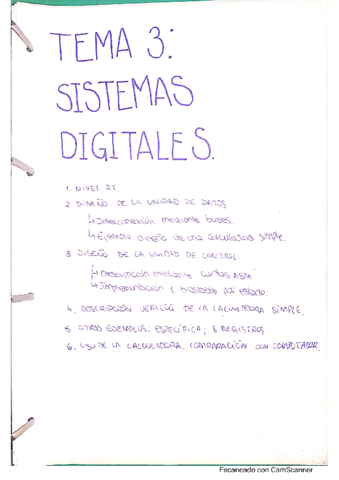 TEMA 3:
SISTEMAS
DIGITALES.
1. NIVEL RT.
2 DISEÑO DE LA UNIDAD DE DATOS
↳ Interconexión mediante buses.
↳ Ejemplo diseño de una calculadora simple.
3 DISEÑO DE LA UNIDAD DE CONTROL.
↳ Descripción mediante cartas ASM
↳ Implementación 1 biestable por estado.
4. DESCRIPCIÓN VERILOG DE LA CALCULADORA SIMPLE.
5 OTROS EJEMPLOS: ESPECÍFICA, 8 REGISTROS
6. USO DE LA CALCULADORA. COMPARACIÓN CON COMPUTADOR.
Escaneado con CamScanner